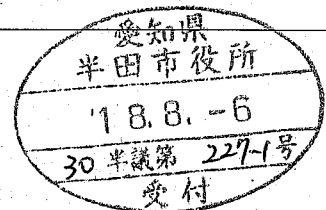 愛知県
半田市役所
'18.8.-6
30半議第 227-1号
受付